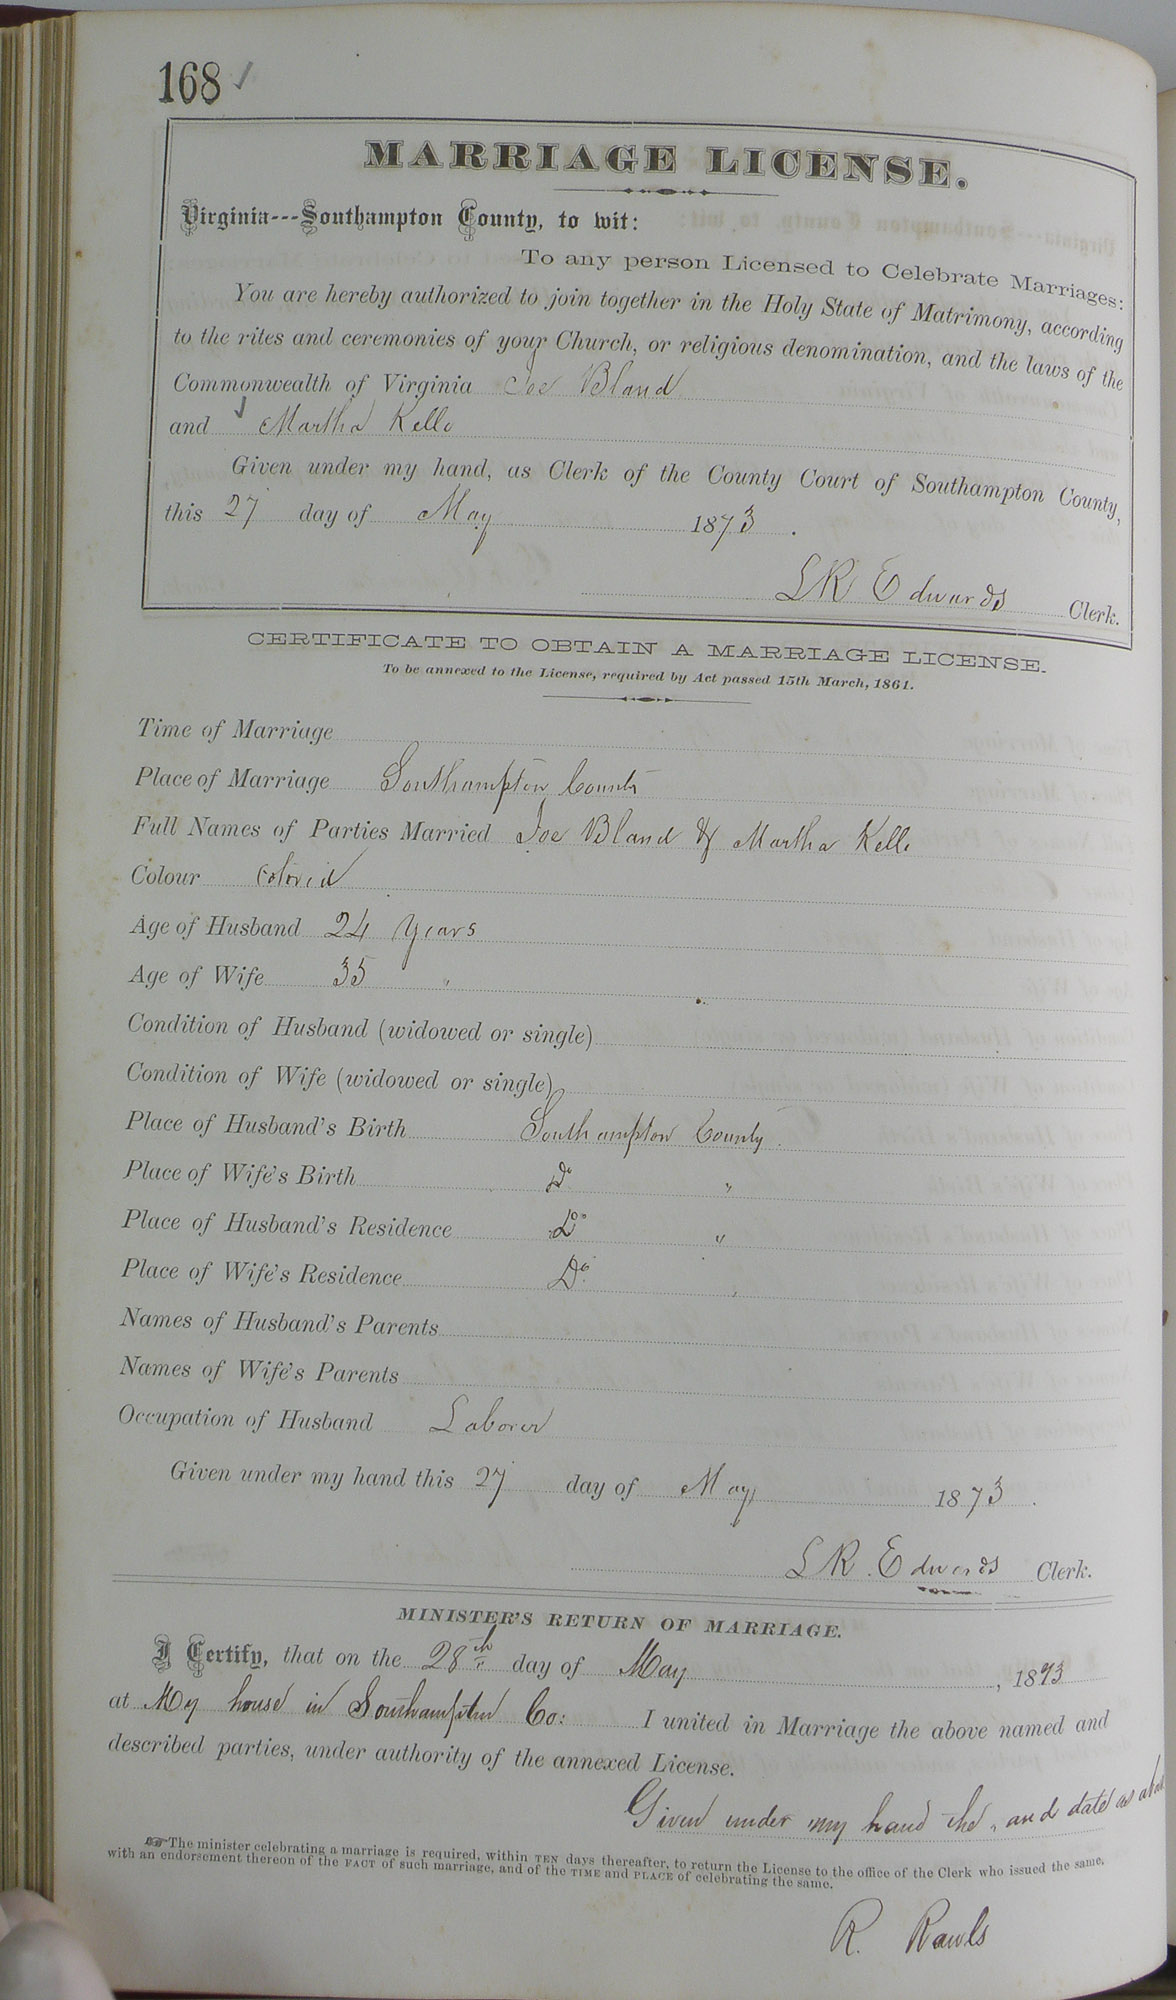 168 ✓
MARRIAGE LICENSE.
Virginia---Southampton County, to wit:
To any person Licensed to Celebrate Marriages:
You are hereby authorized to join together in the Holy State of Matrimony, according
to the rites and ceremonies of your Church, or religious denomination, and the laws of the
Commonwealth of Virginia Joe Bland
and ✓ Martha Kello
Given under my hand, as Clerk of the County Court of Southampton County,
this 27 day of May 1873.
LR Edwards Clerk.
CERTIFICATE TO OBTAIN A MARRIAGE LICENSE.
To be annexed to the License, required by Act passed 15th March, 1861.
Time of Marriage
Place of Marriage Southampton County
Full Names of Parties Married Joe Bland & Martha Kello
Colour Colored
Age of Husband 24 Years
Age of Wife 35 "
Condition of Husband (widowed or single)
Condition of Wife (widowed or single)
Place of Husband's Birth Southampton County
Place of Wife's Birth Do "
Place of Husband's Residence Do "
Place of Wife's Residence Do "
Names of Husband's Parents
Names of Wife's Parents
Occupation of Husband Laborer
Given under my hand this 27 day of May 1873.
LR Edwards Clerk.
MINISTER'S RETURN OF MARRIAGE.
I Certify, that on the 28th day of May, 1873
at My house in Southampton Co: I united in Marriage the above named and
described parties, under authority of the annexed License.
Given under my hand the, and date as above
☞The minister celebrating a marriage is required, within TEN days thereafter, to return the License to the office of the Clerk who issued the same,
with an endorsement thereon of the FACT of such marriage, and of the TIME and PLACE of celebrating the same.
R. Rawls